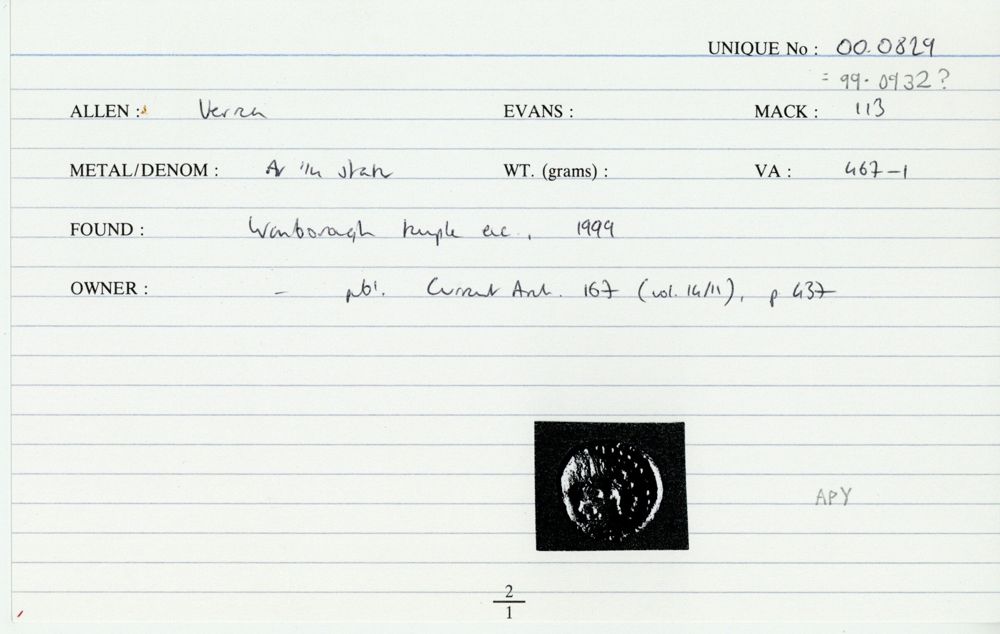 UNIQUE No : 00.0829
= 99.0932?
ALLEN : Verica EVANS : MACK : 113
METAL/DENOM : Ar unit WT. (grams) : VA : 467-1
FOUND : Wanborough temple exc., 1999
OWNER : – publ. Current Arch. 167 (vol. 14/11), p 437
APY
2
1